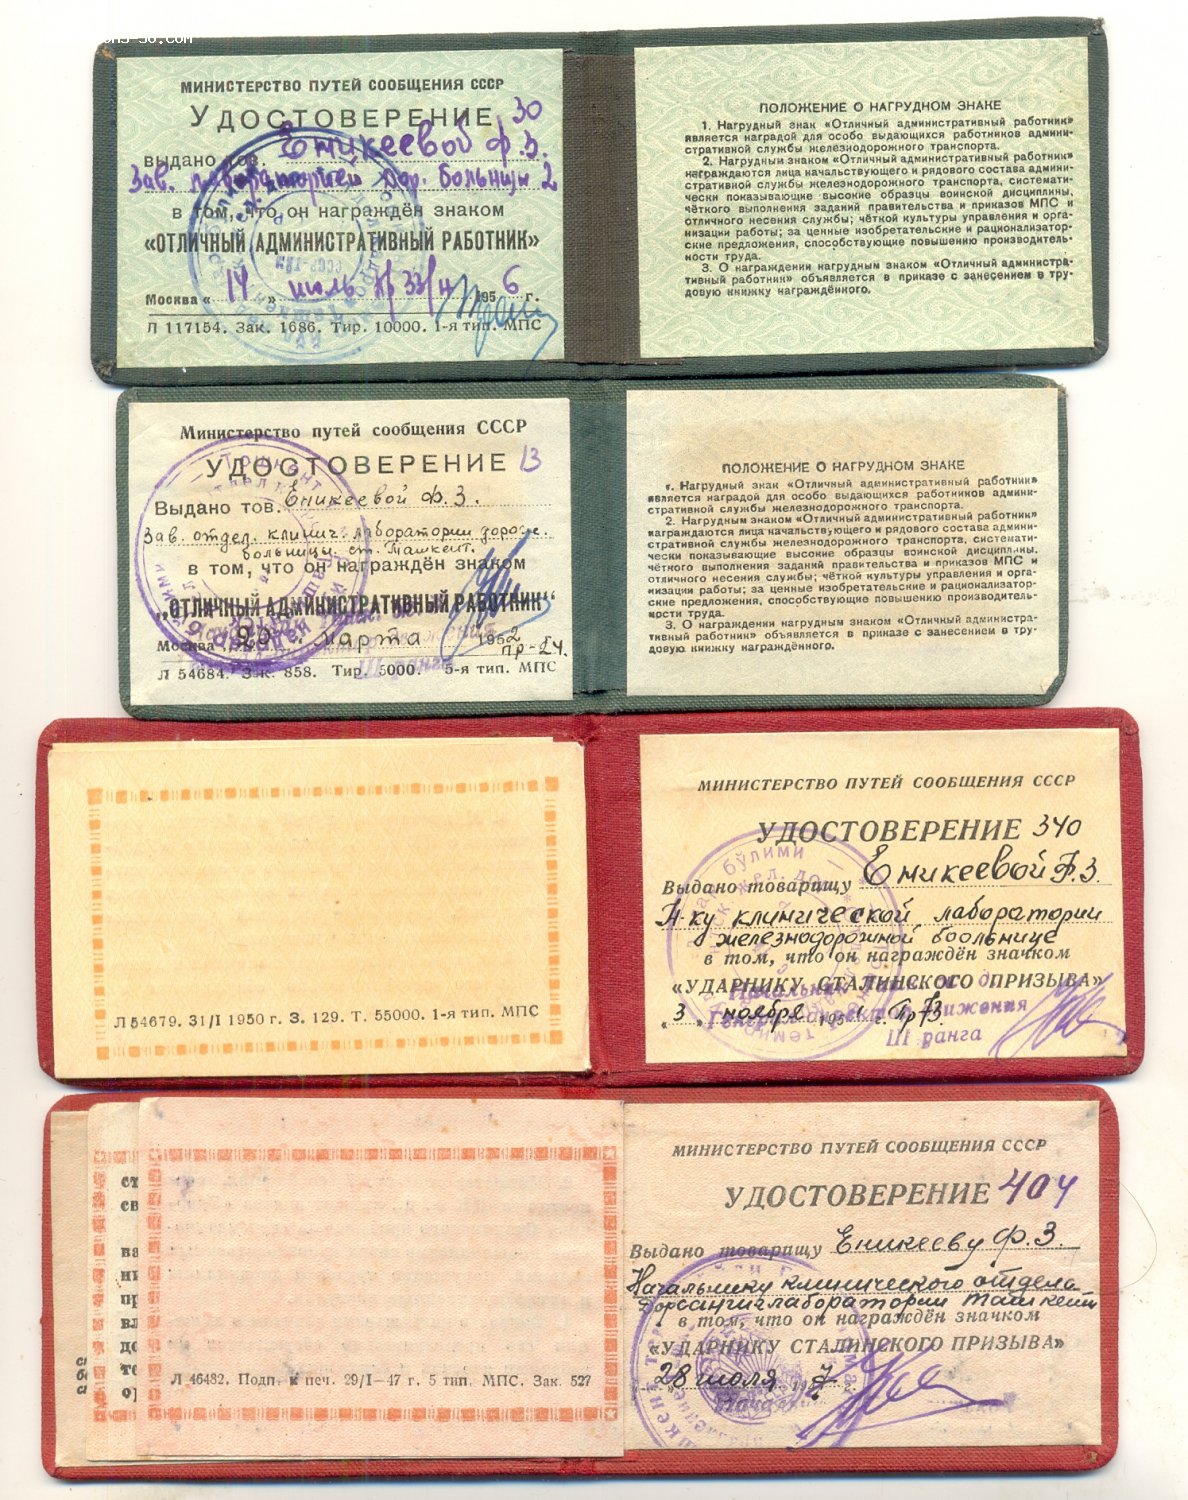 МИНИСТЕРСТВО ПУТЕЙ СООБЩЕНИЯ СССР
УДОСТОВЕРЕНИЕ 30
выдано тов. Еникеевой Ф.З.
Зав. лабораторией Дор. больницы 2
в том, что он награждён знаком
«ОТЛИЧНЫЙ АДМИНИСТРАТИВНЫЙ РАБОТНИК»
Москва « 14 » июль пр 33/н 1956 г.
Л 117154. Зак. 1686. Тир. 10000. 1-я тип. МПС
ПОЛОЖЕНИЕ О НАГРУДНОМ ЗНАКЕ
1. Нагрудный знак «Отличный административный работник»
является наградой для особо выдающихся работников админи-
стративной службы железнодорожного транспорта.
2. Нагрудным знаком «Отличный административный работник»
награждаются лица начальствующего и рядового состава админи-
стративной службы железнодорожного транспорта, системати-
чески показывающие высокие образцы воинской дисциплины,
чёткого выполнения заданий правительства и приказов МПС и
отличного несения службы; чёткой культуры управления и орга-
низации работы; за ценные изобретательские и рационализатор-
ские предложения, способствующие повышению производитель-
ности труда.
3. О награждении нагрудным знаком «Отличный администра-
тивный работник» объявляется в приказе с занесением в тру-
довую книжку награждённого.
Министерство путей сообщения СССР
УДОСТОВЕРЕНИЕ 13
Выдано тов. Еникеевой Ф.З.
Зав. отдел. клинич. лаборатории дорож.
больницы ст. Ташкент.
в том, что он награждён знаком
„ОТЛИЧНЫЙ АДМИНИСТРАТИВНЫЙ РАБОТНИК"
Москва 25 марта 1952 г.
пр-24.
III ранга
Л 54684. Зак. 858. Тир. 5000. 5-я тип. МПС
ПОЛОЖЕНИЕ О НАГРУДНОМ ЗНАКЕ
1. Нагрудный знак «Отличный административный работник»
является наградой для особо выдающихся работников админи-
стративной службы железнодорожного транспорта.
2. Нагрудным знаком «Отличный административный работник»
награждаются лица начальствующего и рядового состава админи-
стративной службы железнодорожного транспорта, системати-
чески показывающие высокие образцы воинской дисциплины,
чётного выполнения заданий правительства и приказов МПС и
отличного несения службы; чёткой культуры управления и орга-
низации работы; за ценные изобретательские и рационализатор-
ские предложения, способствующие повышению производитель-
ности труда.
3. О награждении нагрудным знаком «Отличный администра-
тивный работник» объявляется в приказе с занесением в тру-
довую книжку награждённого.
Л 54679. 31/I 1950 г. З. 129. Т. 55000. 1-я тип. МПС
МИНИСТЕРСТВО ПУТЕЙ СООБЩЕНИЯ СССР
УДОСТОВЕРЕНИЕ 340
Выдано товарищу Еникеевой Ф.З.
Н-ку клинической лаборатории
железнодорожной больнице
в том, что он награждён значком
«УДАРНИКУ СТАЛИНСКОГО ПРИЗЫВА»
« 3 » ноября 1951 г. Пр 73.
III ранга
Л 46482. Подп. к печ. 29/I—47 г. 5 тип. МПС. Зак. 527
МИНИСТЕРСТВО ПУТЕЙ СООБЩЕНИЯ СССР
УДОСТОВЕРЕНИЕ 404
Выдано товарищу Еникееву Ф.З.
Начальнику клинического отдела
Дорсанбаклаборатории Ташкент
в том, что он награждён значком
«УДАРНИКУ СТАЛИНСКОГО ПРИЗЫВА»
«28 июля 1947 г.